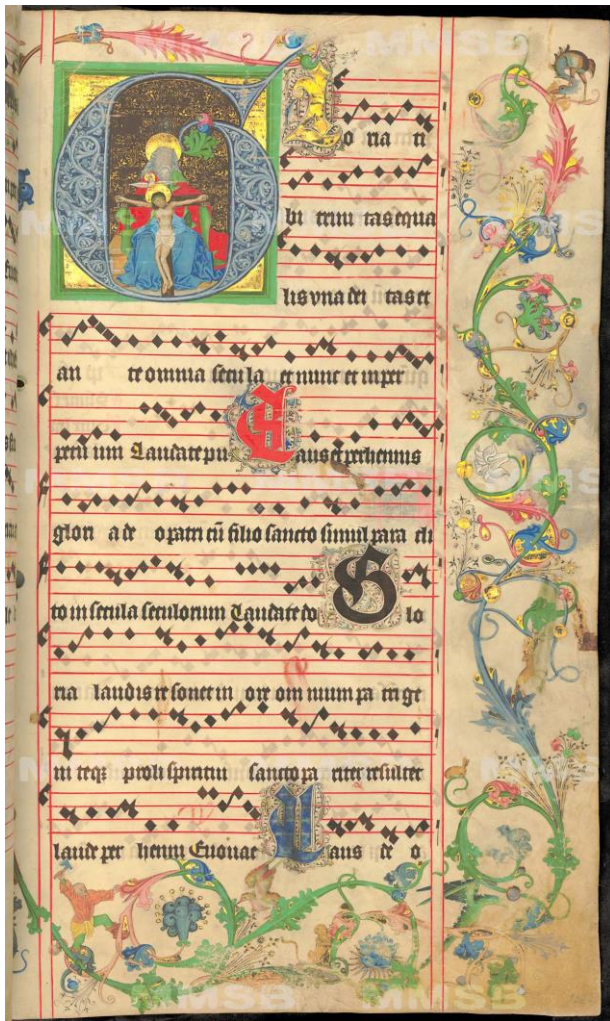 G loria ti
bi trini tas equa
lis vna dei tas et
an te omnia secula et nunc et inper
petu um Laudate pu Laus et perhennis
glori a de o patri cū filio sancto simul para cli
to in secula seculorum Laudate do Glo
ria laudis resonet in ore om nium pa tri ge
ni teqȝ proli spiritui sancto pa riter resultet
laude per henni Euouae Laus de o
MMSB